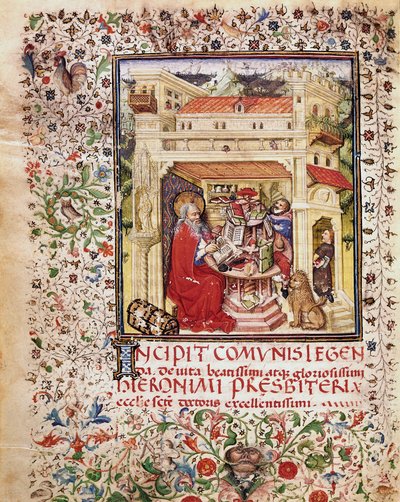 INCIPIT COMVNIS LEGEN
DA. de vita beatissimi. atq; gloriosissimi
HIERONIMI PRESBITERI. &
ecclie scte doctoris excellentissimi.